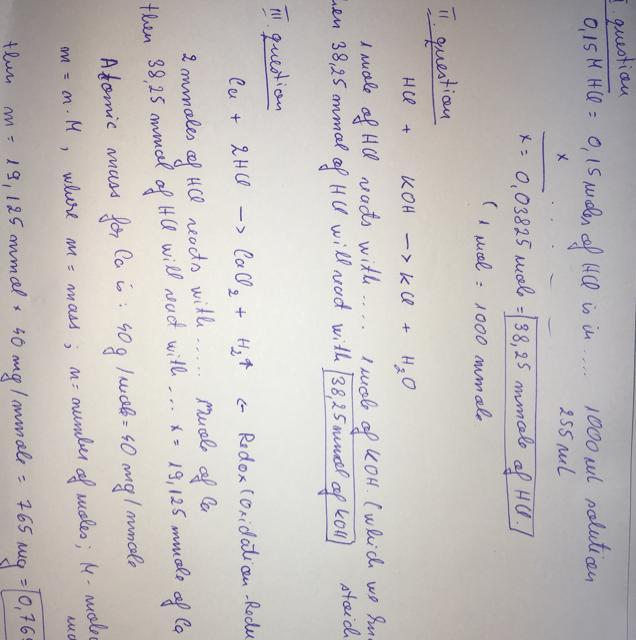 I. question
0,15 M HCl = 0,15 moles of HCl is in .... 1000 ml solution
x .... 255 ml
x = 0,03825 mole = 38,25 mmole of HCl.
( 1 mol = 1000 mmole
II question
HCl + KOH -> KCl + H2O
1 mole of HCl reacts with .... 1 mole of KOH. (which we
38,25 mmol of HCl will react with 38,25 mmol of KOH
III question
Ca + 2HCl -> CaCl2 + H2↑ <- Redox (Oxidation-Redu
2 mmoles of HCl reacts with ..... 1 mole of Ca
then 38,25 mmol of HCl will react with ... x = 19,125 mmole of Ca
Atomic mass for Ca is: 40 g/mole = 40 mg/mmole
m = n · M, where m = mass; n = number of moles; M -
then m = 19,125 mmol × 40 mg/mmole = 765 mg = 0,765